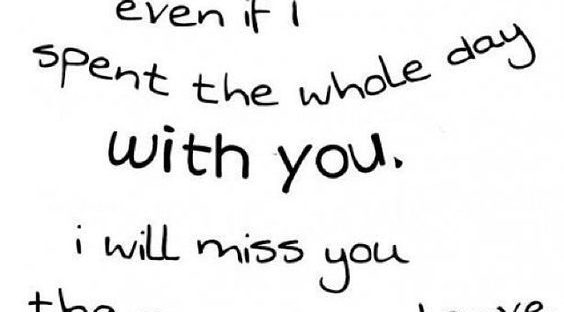 even if I
spent the whole day
with you.
i will miss you
the